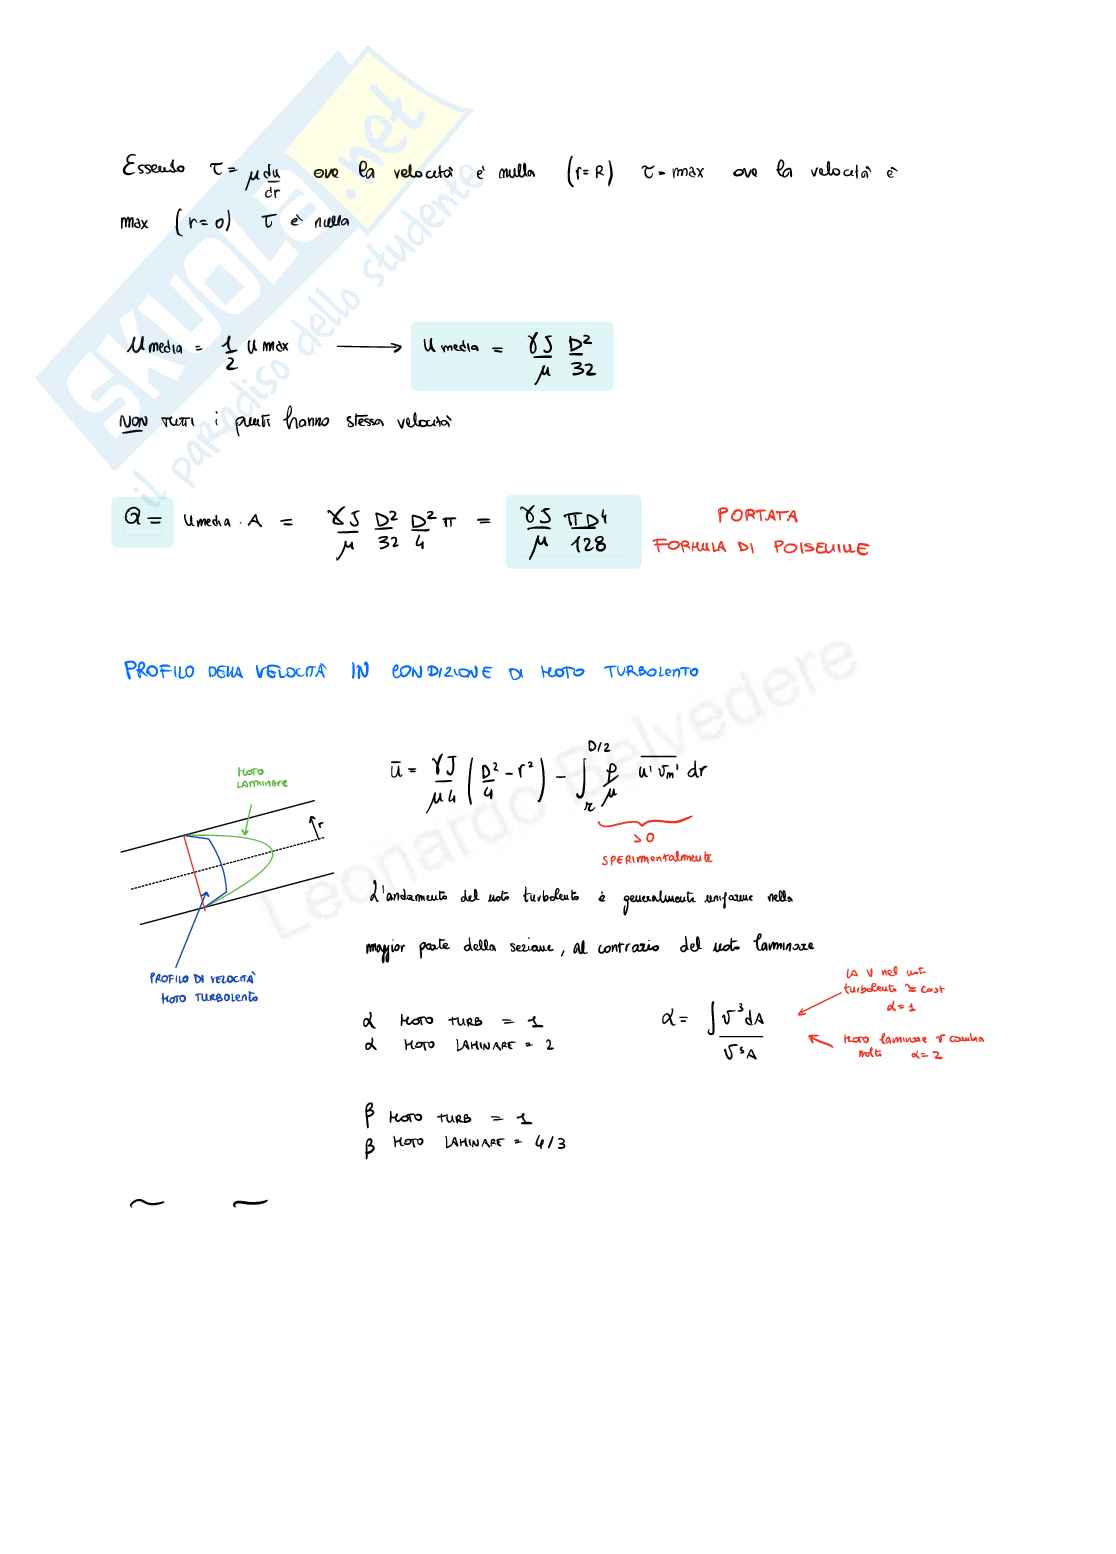 SKUOLA.net
il paradiso dello studente
Essendo τ = μ du/dr ove la velocità è nulla (r=R) τ = max ove la velocità è
max (r=0) τ è nulla
u media = 1/2 u max → u media = γJ/μ D²/32
NON TUTTI i punti hanno stessa velocità
Q = u media · A = γJ/μ D²/32 D²/4 π = γJ/μ πD⁴/128
PORTATA
FORMULA DI POISEUILLE
PROFILO DELLA VELOCITÀ IN CONDIZIONE DI MOTO TURBOLENTO
Leonardo Belvedere
ū = γJ/μ4 (D²/4 - r²) - ∫_r^{D/2} ρ/μ \overline{u' v_m'} dr
>0
SPERIMENTALMENTE
MOTO
LAMINARE
r
PROFILO DI VELOCITÀ
MOTO TURBOLENTO
L'andamento del moto turbolento è generalmente uniforme nella
maggior parte della sezione, al contrario del moto laminare
α MOTO TURB = 1
α MOTO LAMINARE = 2
α = ∫v³dA / v³A
LA V nel mot
turbolento ≃ cost
α=1
Moto laminare v cambia
molto α=2
β MOTO TURB = 1
β MOTO LAMINARE = 4/3
~ ~